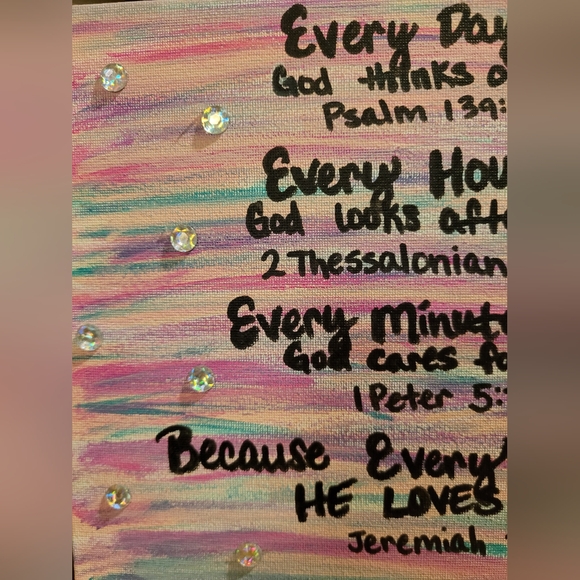 Every Day
God thinks o
Psalm 139:
Every Hou
God looks afte
2 Thessalonian
Every Minute
God cares fo
1 Peter 5:
Because Every
HE LOVES
Jeremiah